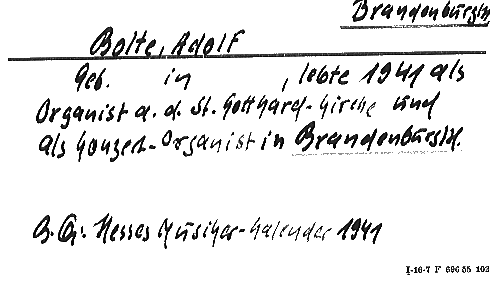 Brandenburg/H.
Bolte, Adolf
Geb. in , lebte 1941 als
Organist a. d. St. Gotthard-Kirche und
als Konzert-Organist in Brandenburg/H.
Hesses Musiker-Kalender 1941
I-16-7 F 696 55 102